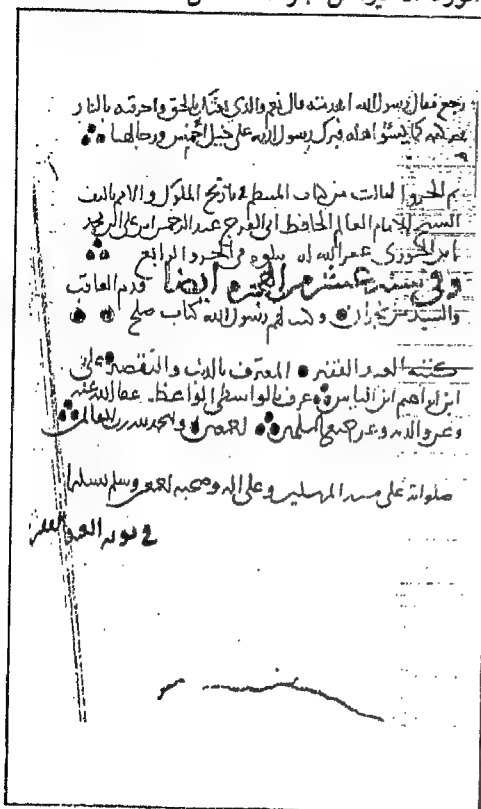 رجع فقال رسول الله اهدمته قال نعم والذي بعثك بالحق واحرقته بالنار
فبرك رسول الله على خيل احمس ورجالها
تم الجزو الثالث من كتاب المنتظم في تاريخ الملوك والامم تاليف
الشيخ الامام العالم الحافظ ابي الفرج عبد الرحمن ابن علي
ابن الجوزي غفر الله له يتلوه في الجزو الرابع
وفي سنة عشر من الهجرة ايضا قدم العاقب
والسيد من نجران وكتب لهم رسول الله كتاب صلح
كتبه العبد الفقير المعترف بالذنب والتقصير علي
ابن ابراهيم ابن الياس عرف بالواسطي الواعظ عفا الله عنه
وعن والديه وعن جميع المسلمين اجمعين والحمد لله رب العالمين
صلواته على سيد المرسلين وعلى اله وصحبه اجمعين وسلم تسليما
في نوبه العبد الفقير